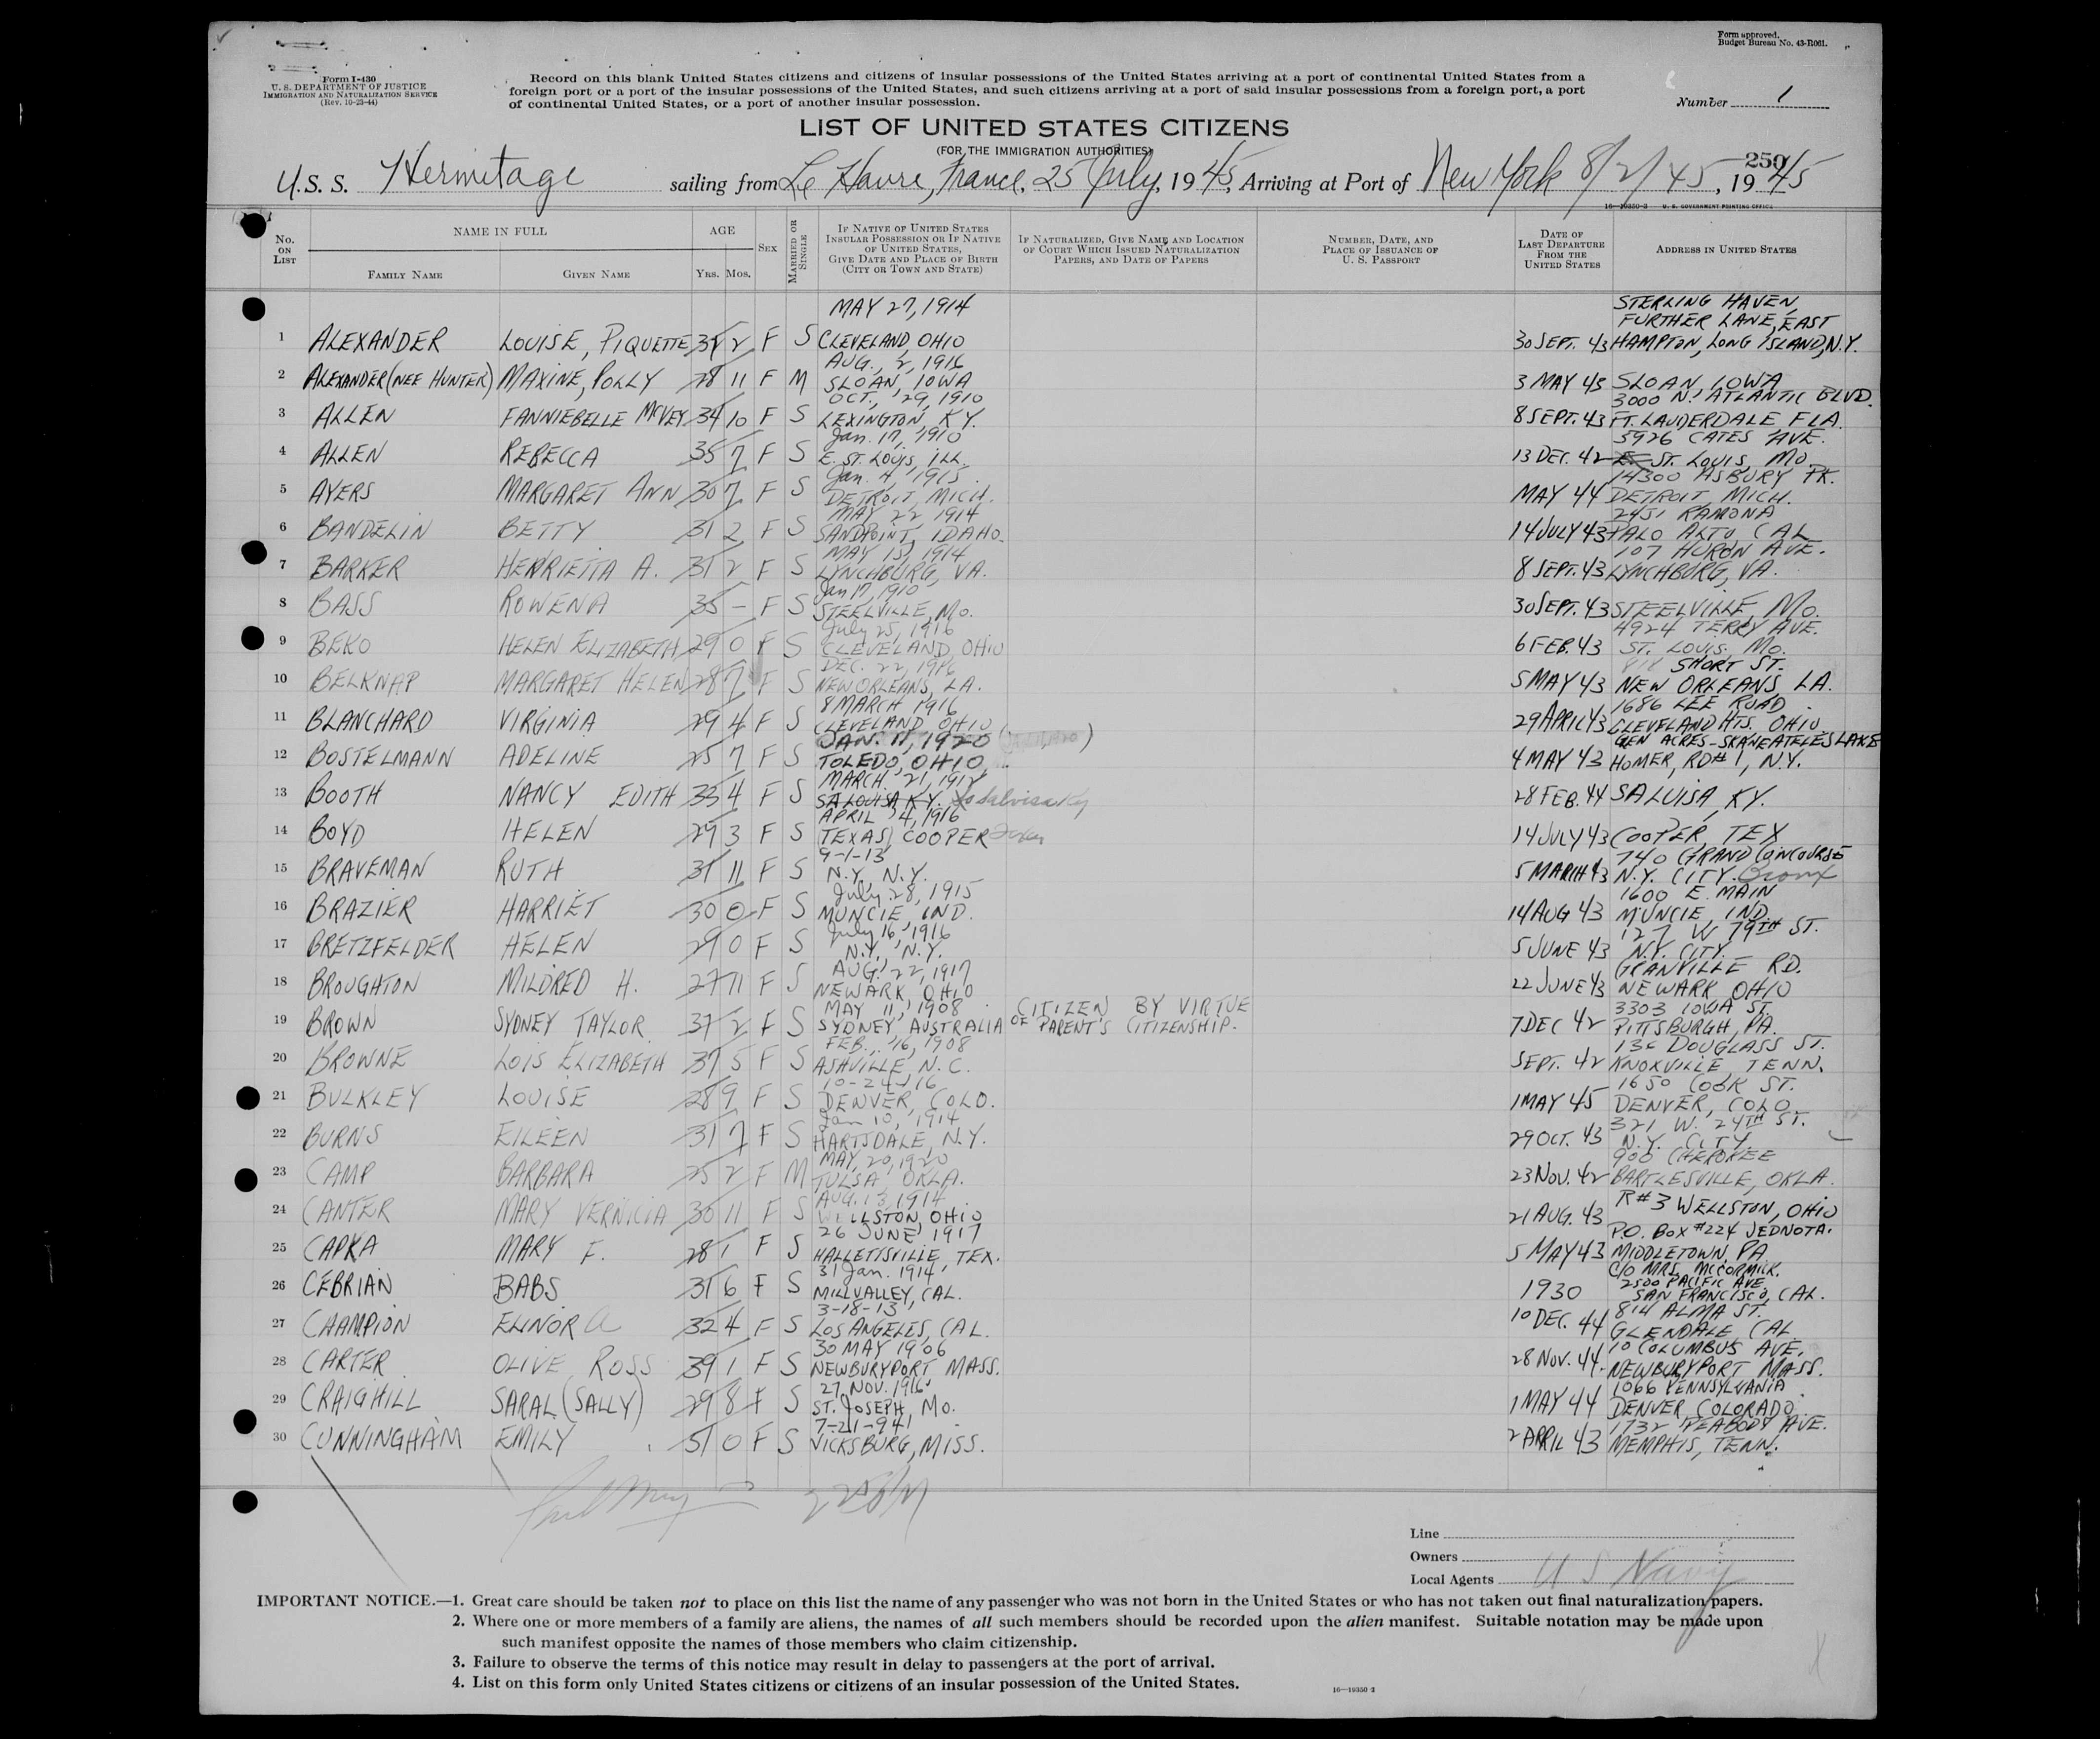 Form approved.
Budget Bureau No. 43-R061.
Form I-430
U. S. DEPARTMENT OF JUSTICE
IMMIGRATION AND NATURALIZATION SERVICE
(Rev. 10-25-44)
Record on this blank United States citizens and citizens of insular possessions of the United States arriving at a port of continental United States from a
foreign port or a port of the insular possessions of the United States, and such citizens arriving at a port of said insular possessions from a foreign port, a port
of continental United States, or a port of another insular possession.
Number 1
LIST OF UNITED STATES CITIZENS
(FOR THE IMMIGRATION AUTHORITIES)
250
U.S. S. Hermitage sailing from Le Havre, France, 25 July, 1945, Arriving at Port of New York 8/2/45, 1945
16—19350-3 U. S. GOVERNMENT PRINTING OFFICE
No. ON LIST
NAME IN FULL
FAMILY NAME
GIVEN NAME
AGE
Yrs. Mos.
SEX
MARRIED OR SINGLE
IF NATIVE OF UNITED STATES
INSULAR POSSESSION OR IF NATIVE
OF UNITED STATES,
GIVE DATE AND PLACE OF BIRTH
(CITY OR TOWN AND STATE)
IF NATURALIZED, GIVE NAME AND LOCATION
OF COURT WHICH ISSUED NATURALIZATION
PAPERS, AND DATE OF PAPERS
NUMBER, DATE, AND
PLACE OF ISSUANCE OF
U. S. PASSPORT
DATE OF
LAST DEPARTURE
FROM THE
UNITED STATES
ADDRESS IN UNITED STATES
MAY 27, 1914 STERLING HAVEN,
FURTHER LANE, EAST
1 ALEXANDER LOUISE, PIQUETTE 31 2 F S CLEVELAND OHIO 30 SEPT. 43 HAMPTON, LONG ISLAND, N.Y.
AUG., 2, 1916
2 ALEXANDER (NEE HUNTER) MAXINE, POLLY 28 11 F M SLOAN, IOWA 3 MAY 43 SLOAN, IOWA
OCT., 29, 1910 3000 N. ATLANTIC BLVD.
3 ALLEN FANNIEBELLE MCVEY 34 10 F S LEXINGTON, KY. 8 SEPT. 43 FT. LAUDERDALE FLA.
Jan. 17, 1910 5926 CATES AVE.
4 ALLEN REBECCA 35 7 F S E. ST. LOUIS, ILL. 13 DEC. 42 E. ST. LOUIS, MO.
Jan. 4, 1915 14300 ASBURY PK.
5 AYERS MARGARET ANN 30 7 F S DETROIT, MICH. MAY 44 DETROIT, MICH.
MAY 22 1914 2451 RAMONA
6 BANDELIN BETTY 31 2 F S SANDPOINT, IDAHO. 14 JULY 43 PALO ALTO CAL
MAY 13, 1914 107 HURON AVE.
7 BARKER HENRIETTA A. 31 2 F S LYNCHBURG, VA. 8 SEPT. 43 LYNCHBURG, VA.
Jan 17, 1910
8 BASS ROWENA 35 - F S STEELVILLE, MO. 30 SEPT. 43 STEELVILLE, MO.
July 25, 1916 4924 TERRY AVE.
9 BEKO HELEN ELIZABETH 29 0 F S CLEVELAND, OHIO 6 FEB. 43 ST. LOUIS, MO.
DEC. 22, 1916 818 SHORT ST.
10 BELKNAP MARGARET HELEN 28 7 F S NEW ORLEANS, LA. 5 MAY 43 NEW ORLEANS LA.
8 MARCH 1916 1686 LEE ROAD
11 BLANCHARD VIRGINIA 29 4 F S CLEVELAND, OHIO 29 APRIL 43 CLEVELAND HTS. OHIO
JAN. 11, 1920 GLEN ACRES - SKANEATELES LAKE
12 BOSTELMANN ADELINE 25 7 F S TOLEDO, OHIO 4 MAY 43 HOMER, RD#1, N.Y.
MARCH. 21, 1912
13 BOOTH NANCY EDITH 33 4 F S SALOUISA KY. Salvisa Ky 28 FEB. 44 SALVISA, KY.
APRIL 4, 1916
14 BOYD HELEN 29 3 F S TEXAS, COOPER 14 JULY 43 COOPER, TEX
9-1-13 740 GRAND CONCOURSE
15 BRAVEMAN RUTH 31 11 F S N.Y, N.Y. 5 MARCH 43 N.Y. CITY. Bronx
July 28, 1915 1600 E. MAIN
16 BRAZIER HARRIET 30 0 F S MUNCIE, IND. 14 AUG 43 MUNCIE, IND.
July 16, 1916 127 W 79TH ST.
17 BRETZFELDER HELEN 29 0 F S N.Y., N.Y. 5 JUNE 43 N.Y. CITY.
AUG. 22, 1917 GRANVILLE RD.
18 BROUGHTON MILDRED H. 27 11 F S NEWARK, OHIO 22 JUNE 43 NEWARK OHIO
MAY 11, 1908 CITIZEN BY VIRTUE 3303 IOWA ST.
19 BROWN SYDNEY TAYLOR 37 2 F S SYDNEY, AUSTRALIA OF PARENT'S CITIZENSHIP. 7 DEC 42 PITTSBURGH, PA.
FEB., 16, 1908 DOUGLASS ST.
20 BROWNE LOIS ELIZABETH 37 5 F S ASHVILLE, N.C. SEPT. 42 KNOXVILLE TENN.
10-24-16 1650 COOK ST.
21 BULKLEY LOUISE 28 9 F S DENVER, COLO. 1 MAY 45 DENVER, COLO.
Jan 10, 1914 321 W. 24TH ST.
22 BURNS EILEEN 31 7 F S HARTSDALE, N.Y. 29 OCT. 43 N.Y. CITY.
MAY, 20, 1920 900 CHEROKEE
23 CAMP BARBARA 25 2 F M TULSA, OKLA. 23 NOV. 42 BARTLESVILLE, OKLA.
AUG. 13, 1914
24 CANTER MARY VERNICIA 30 11 F S WELLSTON, OHIO 21 AUG. 43 R#3 WELLSTON, OHIO
26 JUNE 1917 P.O. BOX #224 JEDNOTA.
25 CAPKA MARY F. 28 1 F S HALLETTSVILLE, TEX. 5 MAY 43 MIDDLETOWN, PA
31 Jan. 1914 C/O MRS. MCCORMICK.
2500 PACIFIC AVE
26 CEBRIAN BABS 31 6 F S MILLVALLEY, CAL. 1930 SAN FRANCISCO, CAL.
3-18-13 814 ALMA ST.
27 CHAMPION ELINOR A 32 4 F S LOS ANGELES, CAL. 10 DEC. 44 GLENDALE CAL
30 MAY 1906 10 COLUMBUS AVE.
28 CARTER OLIVE ROSS 39 1 F S NEWBURYPORT MASS. 28 NOV. 44. NEWBURYPORT MASS.
27, NOV. 1916 1066 PENNSYLVANIA
29 CRAIGHILL SARAL (SALLY) 29 8 F S ST. JOSEPH, MO. 1 MAY 44 DENVER COLORADO.
7-21-94 1732 PEABODY AVE.
30 CUNNINGHAM EMILY 51 0 F S VICKSBURG, MISS. 2 APRIL 43 MEMPHIS, TENN.
Line
Owners
Local Agents U S Navy
IMPORTANT NOTICE.—1. Great care should be taken not to place on this list the name of any passenger who was not born in the United States or who has not taken out final naturalization papers.
2. Where one or more members of a family are aliens, the names of all such members should be recorded upon the alien manifest. Suitable notation may be made upon
such manifest opposite the names of those members who claim citizenship.
3. Failure to observe the terms of this notice may result in delay to passengers at the port of arrival.
4. List on this form only United States citizens or citizens of an insular possession of the United States.
16—19350-3